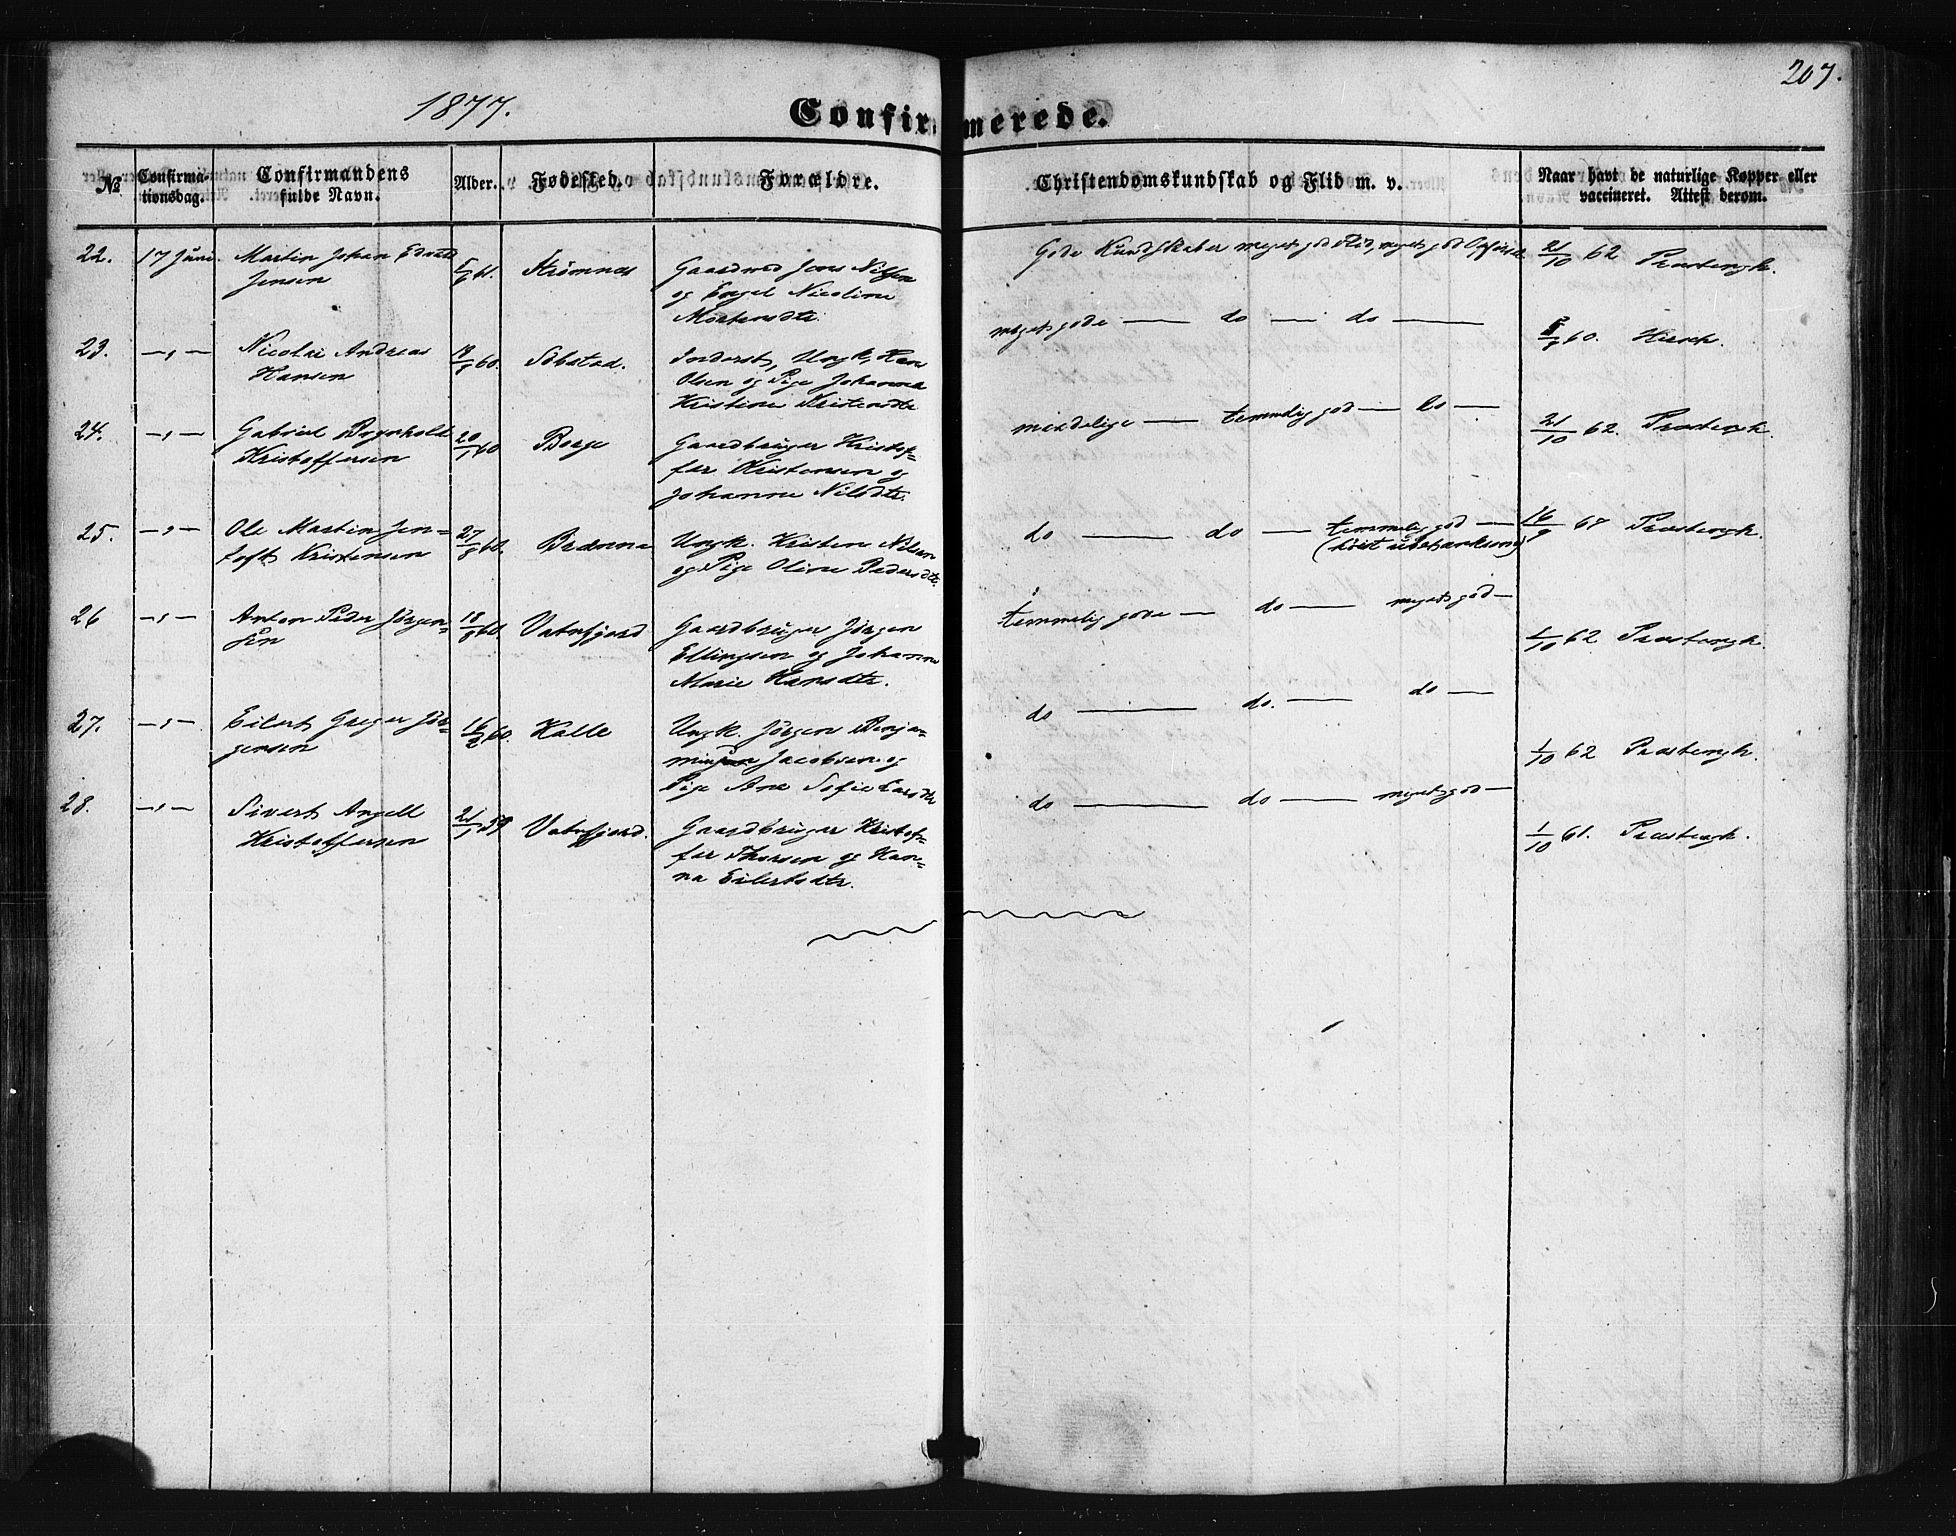 1877.
Confirmerede.
207.
№
Confirma-
tionsdag.
Confirmandens
fulde Navn.
Alder.
Fødested.
Forældre.
Christendomskundskab og Flid m. v.
Naar havt de naturlige Kopper eller
vaccineret. Attest derom.
22. 17 Juni. Martin Johan Edvard
Jensen
61. Strømnes
Gaardmd Jens Nilsen
og Engel Nicoline
Mortensdtr.
Gode Kundskaber meget god Flid, meget god Opførsel.
21/10 62
23. —"— Nicolai Andreas
Hansen
60. Sobstad.
Inderst, Ungk. Hans
Olsen og Pige Johanna
Kristine Kristensdtr
meget gode — do — do —
60. Hirsch.
24. —"— Gabriel Bernhold
Kristoffersen
20/1 60 Borge
Gaardbruger Kristof-
fer Kristensen og
Johanna Nilsdtr.
maadelige — temmelig god — do —
21/10 62.
25. —"— Ole Martin Jen-
toft Kristensen
27/8 60. Brænna
Ungk. Kristen Nilsen
og Pige Oline Pedersdtr.
do — do — temmelig god —
(höist ubetænksom)
16/9 67
26 —"— Anton Peder Jørgen-
sen
18/8 60. Vatnfjord
Gaardbruger Jørgen
Ellingsen og Johanna
Marie Hansdtr.
temmelig gode — do — meget god —
1/10 62
27. —"— Eilert Greger Jör-
gensen
16/2 60. Kalle
Ungk. Jørgen Benja-
min Jacobsen og
Pige Ane Sofie Larsdtr
do — do. — do —
1/10 62
28. —"— Sivert Angell
Kristoffersen
21/1 59 Vatnfjord.
Gaardbruger Kristof-
fer Thorsen og Han-
na Eilertsdtr.
do — do — meget god —
1/10 61.